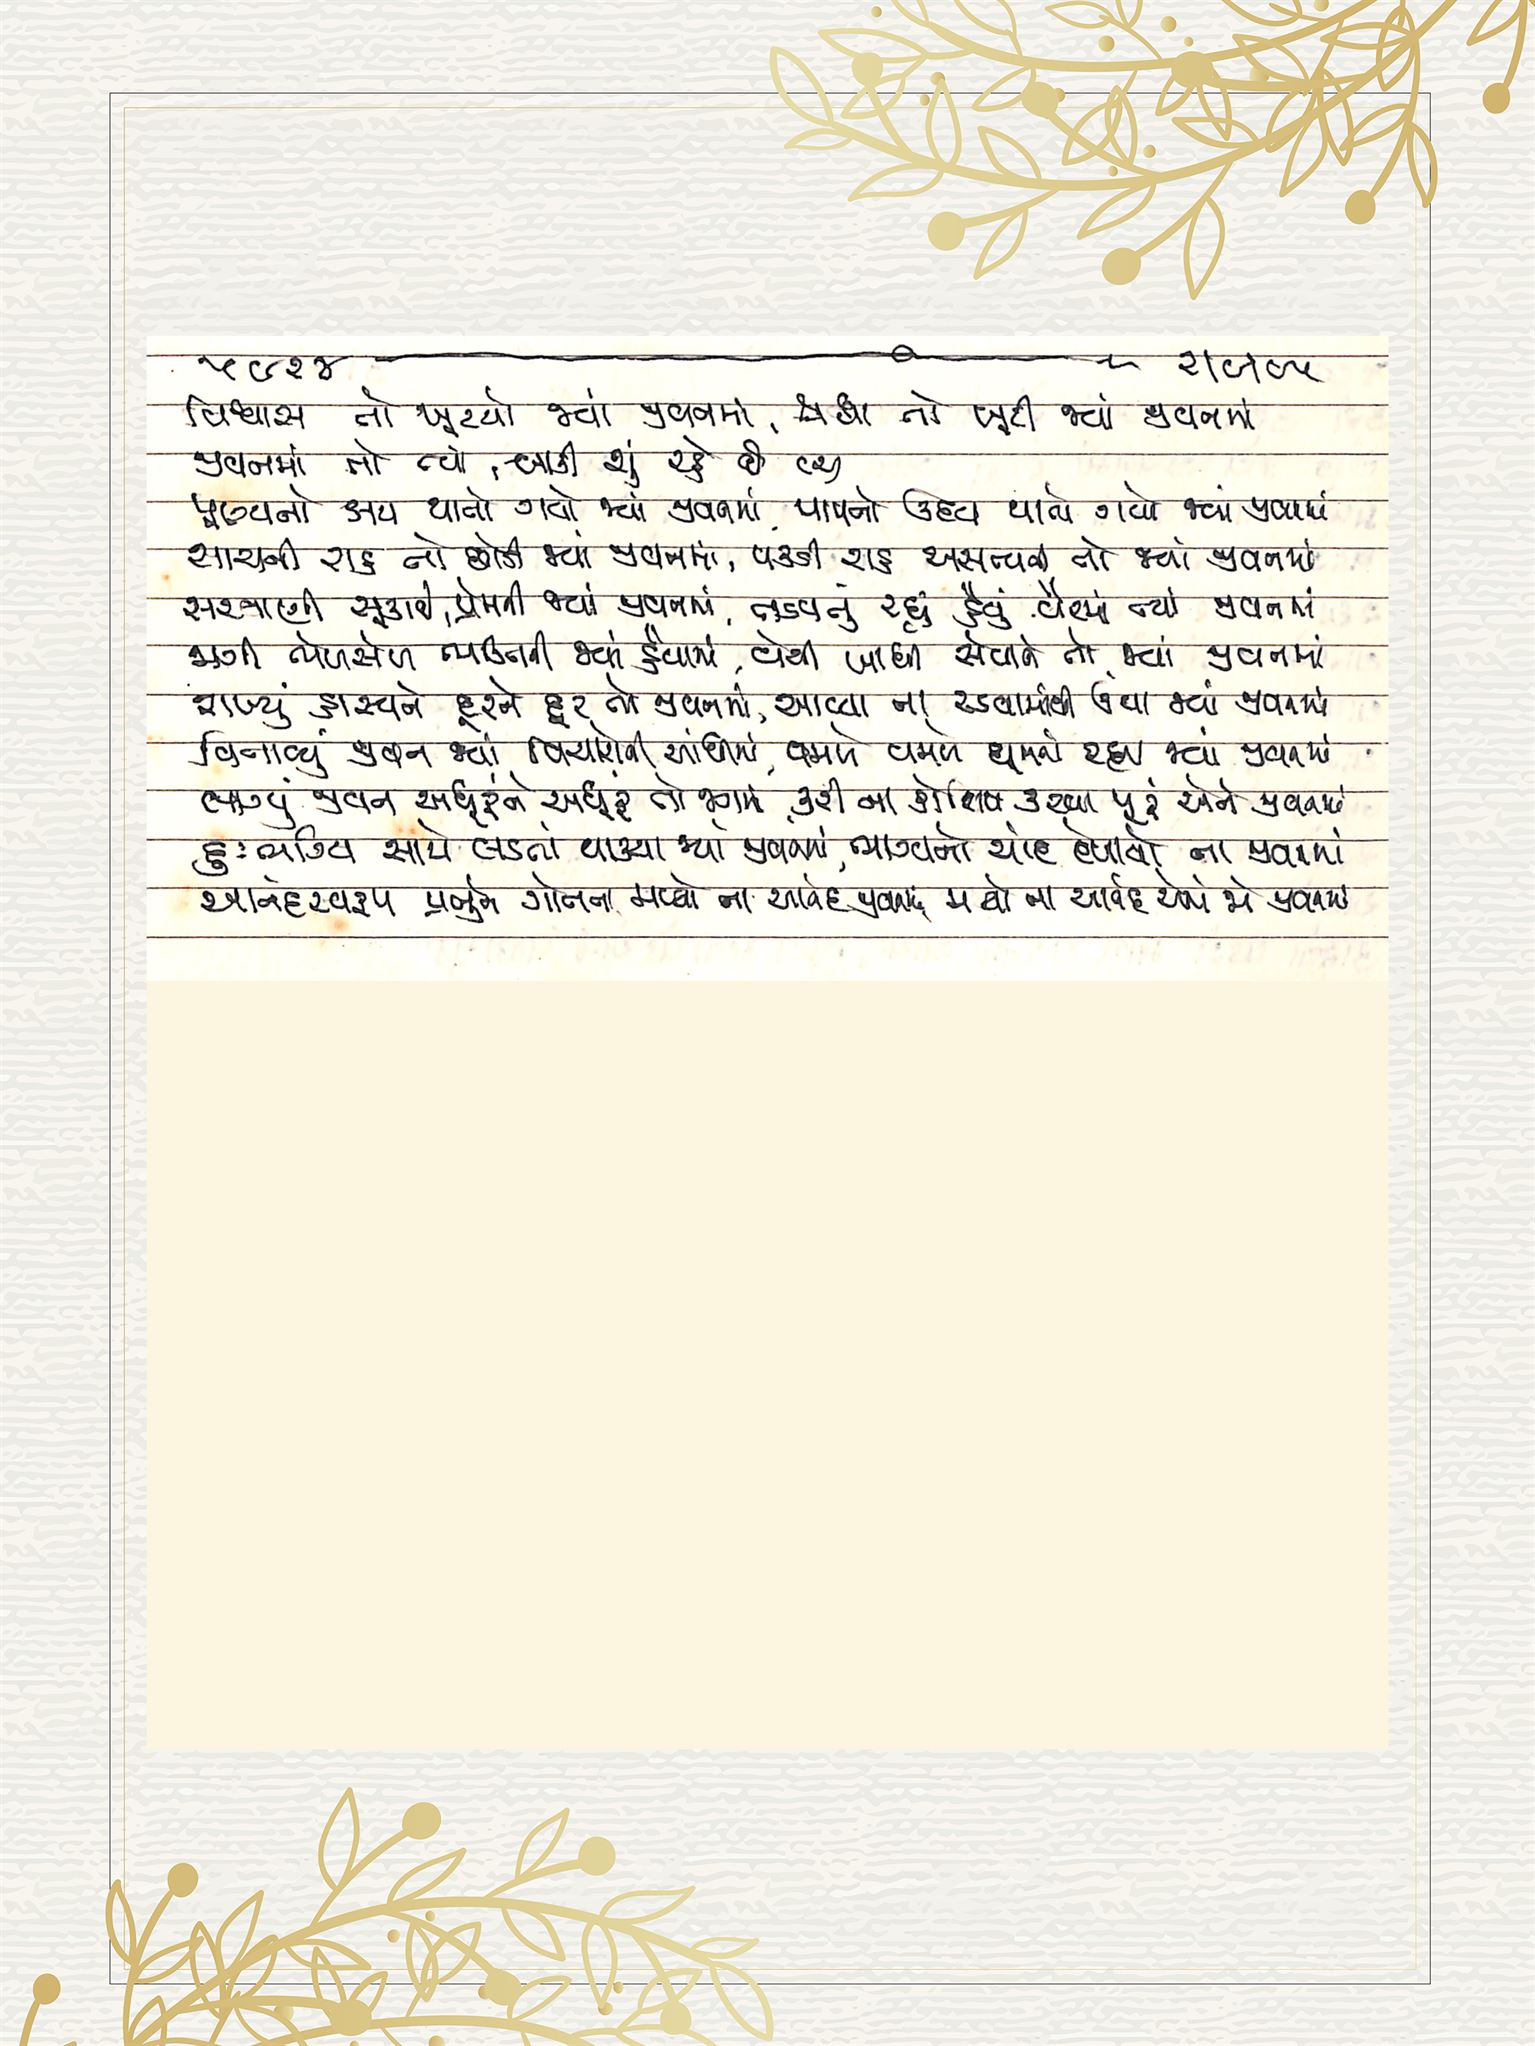 ૫૯૨૪
વિશ્વાસ તો ખૂટયો જ્યાં જીવનમાં, શ્રદ્ધા તો ખૂટી જ્યાં જીવનમાં
જીવનમાં તો ત્યાં, બાકી શું રહે છે
પૂણ્યનો ક્ષય થાતો ગયો જ્યાં જીવનમાં, પાપનો ઉદય થાતો ગયો જ્યાં જીવનમાં
સાચની રાહ તો છોડી જ્યાં જીવનમાં, પકડી રાહ અસત્યની તો જ્યાં જીવનમાં
સરવાણી સૂકાઈ, પ્રેમની જ્યાં જીવનમાં, તડપતું રહ્યું હૈયું વૈરમાં ત્યાં જીવનમાં
જાગી ભેળસેળ ભાવની જ્યાં હૈયામાં, તો જ્યાં જીવનમાં
હાસ્યને દૂરને દૂર તો જીવનમાં, આવ્યા ના રડવામાંથી ઉંચા જ્યાં જીવનમાં
વિતાવ્યું જીવન જ્યાં વિચારોની આંધીમાં, વમળે વમળે ઘૂમતાં રહ્યા જ્યાં જીવનમાં
લાગ્યું જીવન અધૂરૂંને અધૂરૂં તો જગમાં, કરી ના કોશિશ કરવા પૂરૂં એને જીવનમાં
દુઃર્ભાગ્ય સાથે લડતાં થાક્યા જ્યાં જીવનમાં, ભાગ્યનો ચાંદ દેખાયો ના જીવનમાં
આનંદસ્વરૂપ પ્રભુને ગોતતા મળ્યો ના આનંદ જીવનમાં, મળ્યો ના આનંદ એમાં જો જીવનમાં